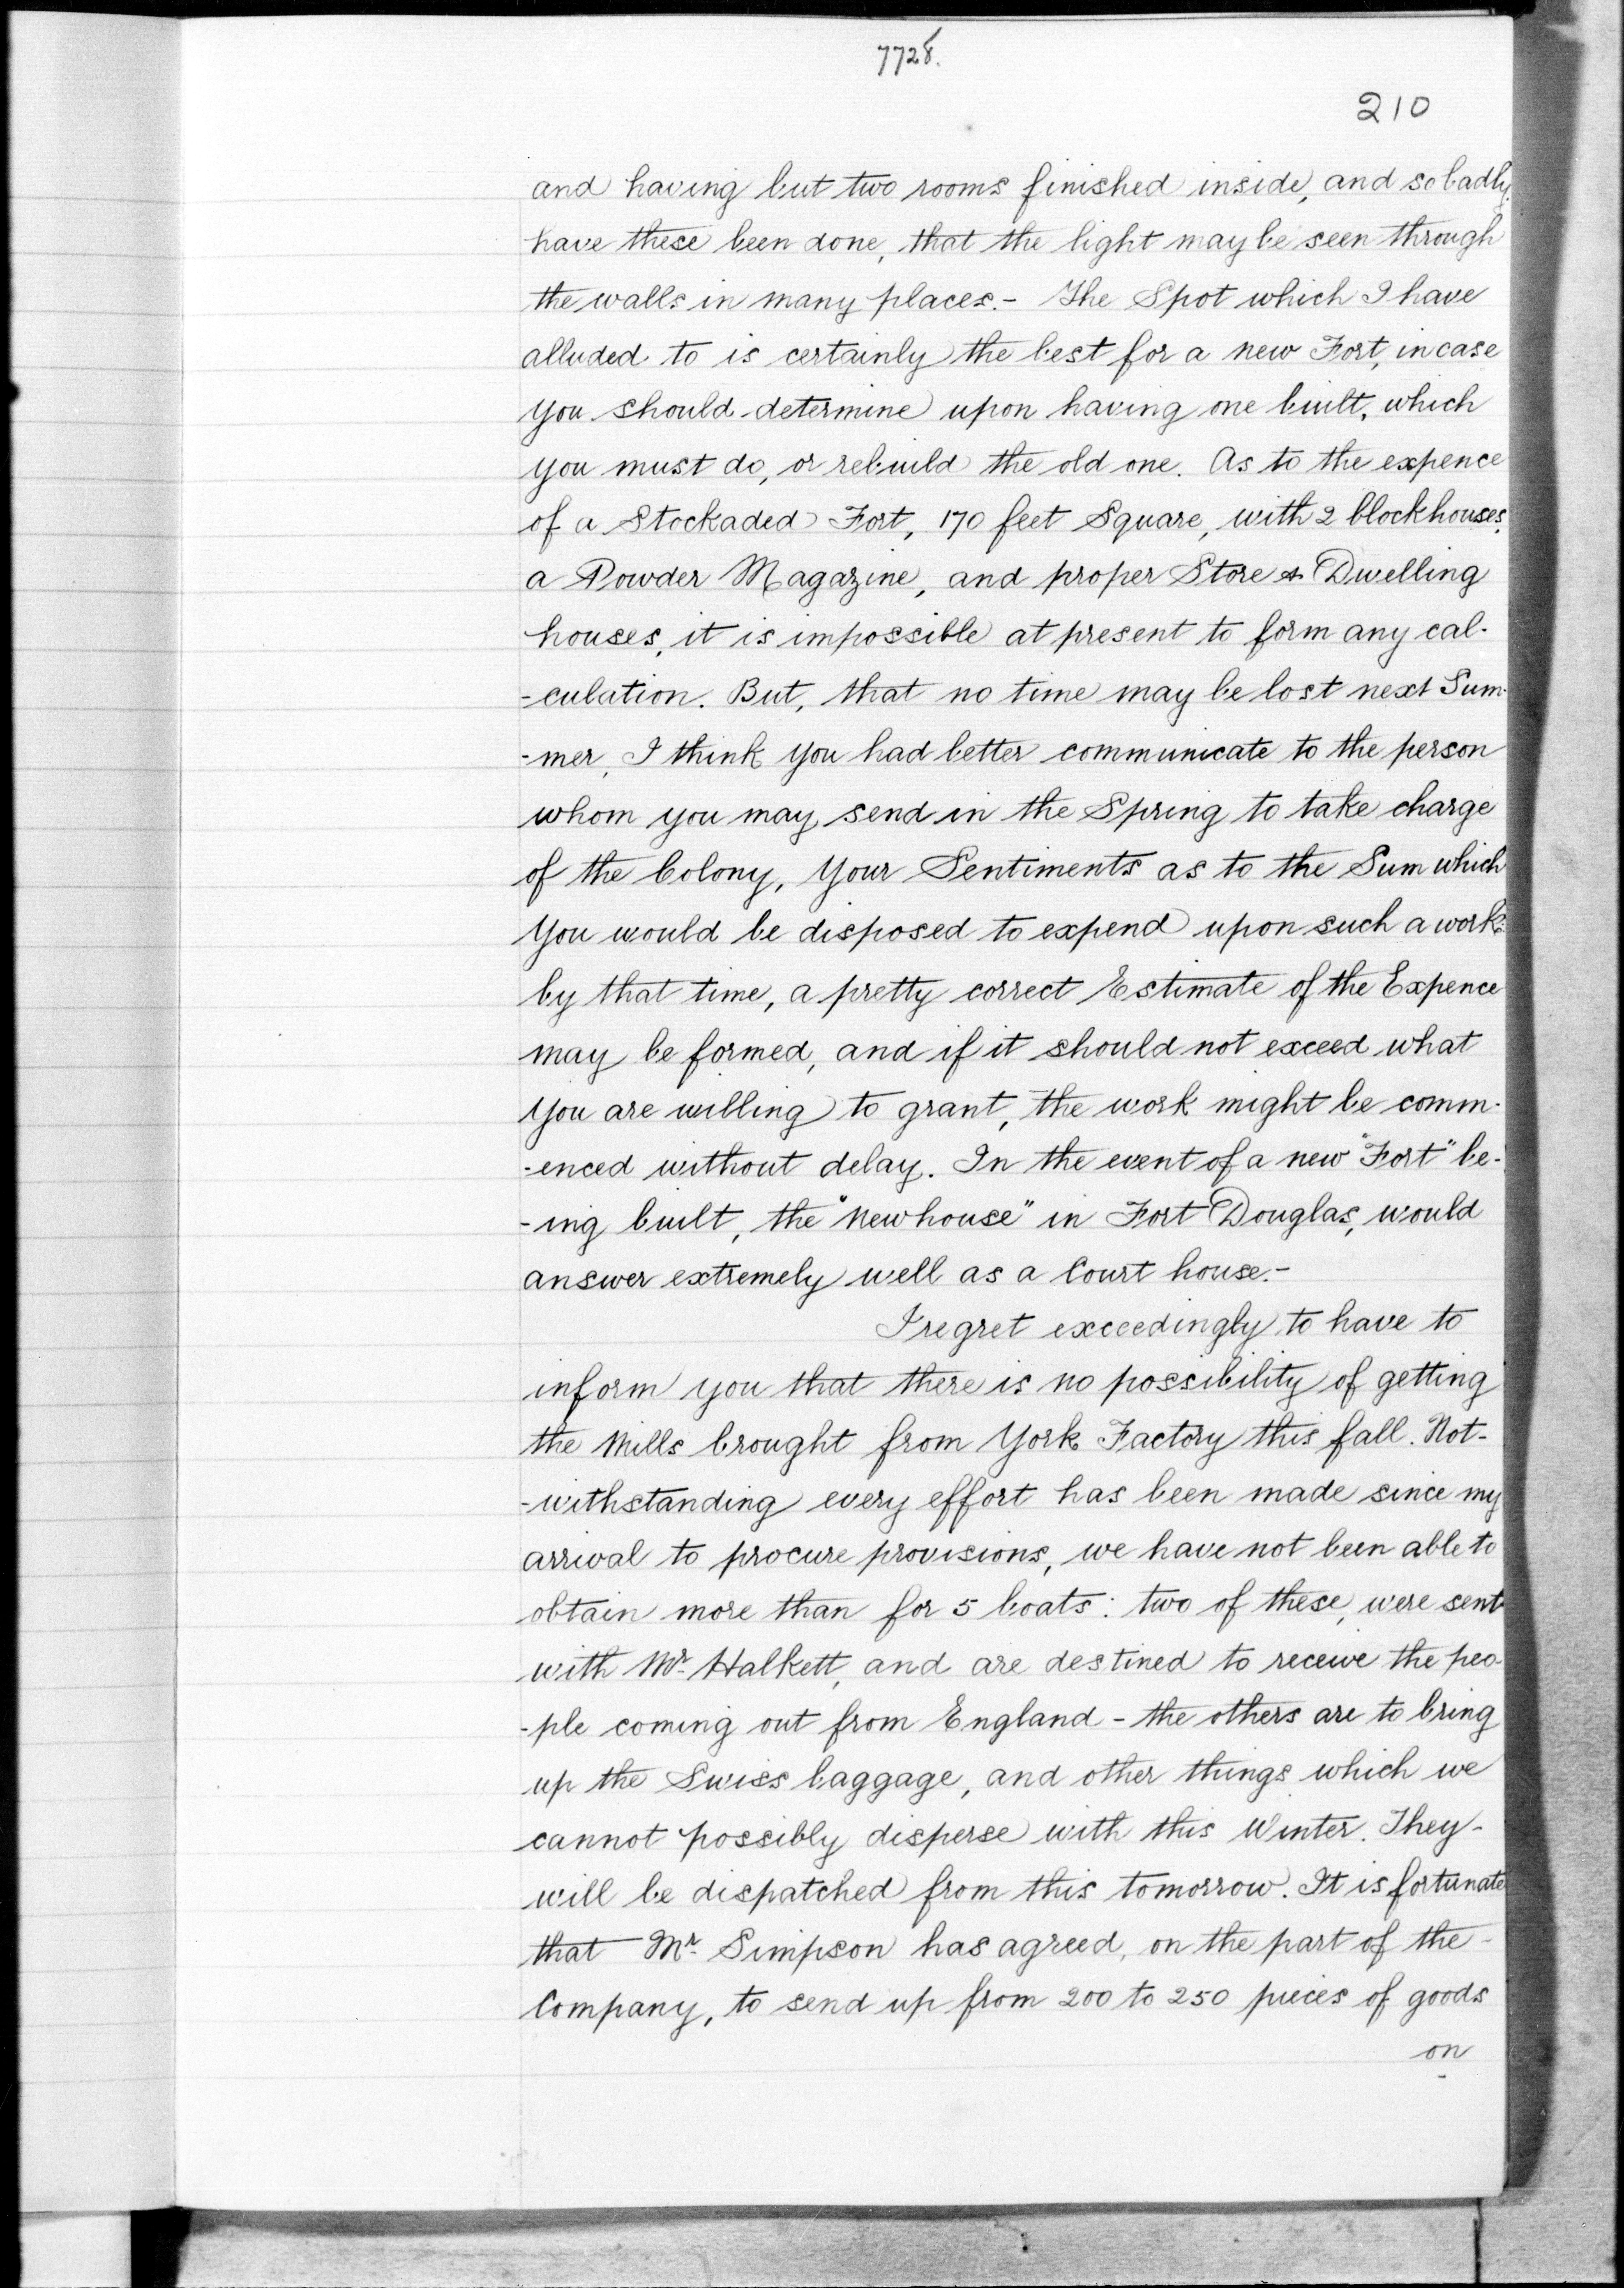 7728.
210
and having but two rooms finished inside, and so badly
have these been done, that the light may be seen through
the walls in many places.- The Spot which I have
alluded to is certainly the best for a new Fort, in case
you should determine upon having one built, which
you must do, or rebuild the old one. As to the expence
of a Stockaded Fort, 170 feet Square, with 2 blockhouses,
a Powder Magazine, and proper Store & Dwelling
houses, it is impossible at present to form any cal-
-culation. But, that no time may be lost next Sum-
-mer, I think you had better communicate to the person
whom you may send in the Spring to take charge
of the Colony, Your Sentiments as to the Sum which
You would be disposed to expend upon such a work:
by that time, a pretty correct Estimate of the Expence
may be formed, and if it should not exceed what
you are willing to grant, the work might be comm-
-enced without delay. In the event of a new "Fort" be-
-ing built, the "New house" in Fort Douglas, would
answer extremely well as a Court house.-
I regret exceedingly to have to
inform you that there is no possibility of getting
the Mills brought from York Factory this fall. Not-
-withstanding every effort has been made since my
arrival to procure provisions, we have not been able to
obtain more than for 5 boats: two of these, were sent
with Mr. Halkett, and are destined to receive the peo-
-ple coming out from England - the others are to bring
up the Swiss baggage, and other things which we
cannot possibly disperse with this Winter. They-
will be dispatched from this tomorrow. It is fortunate
that Mr. Simpson has agreed, on the part of the-
Company, to send up from 200 to 250 pieces of goods
on